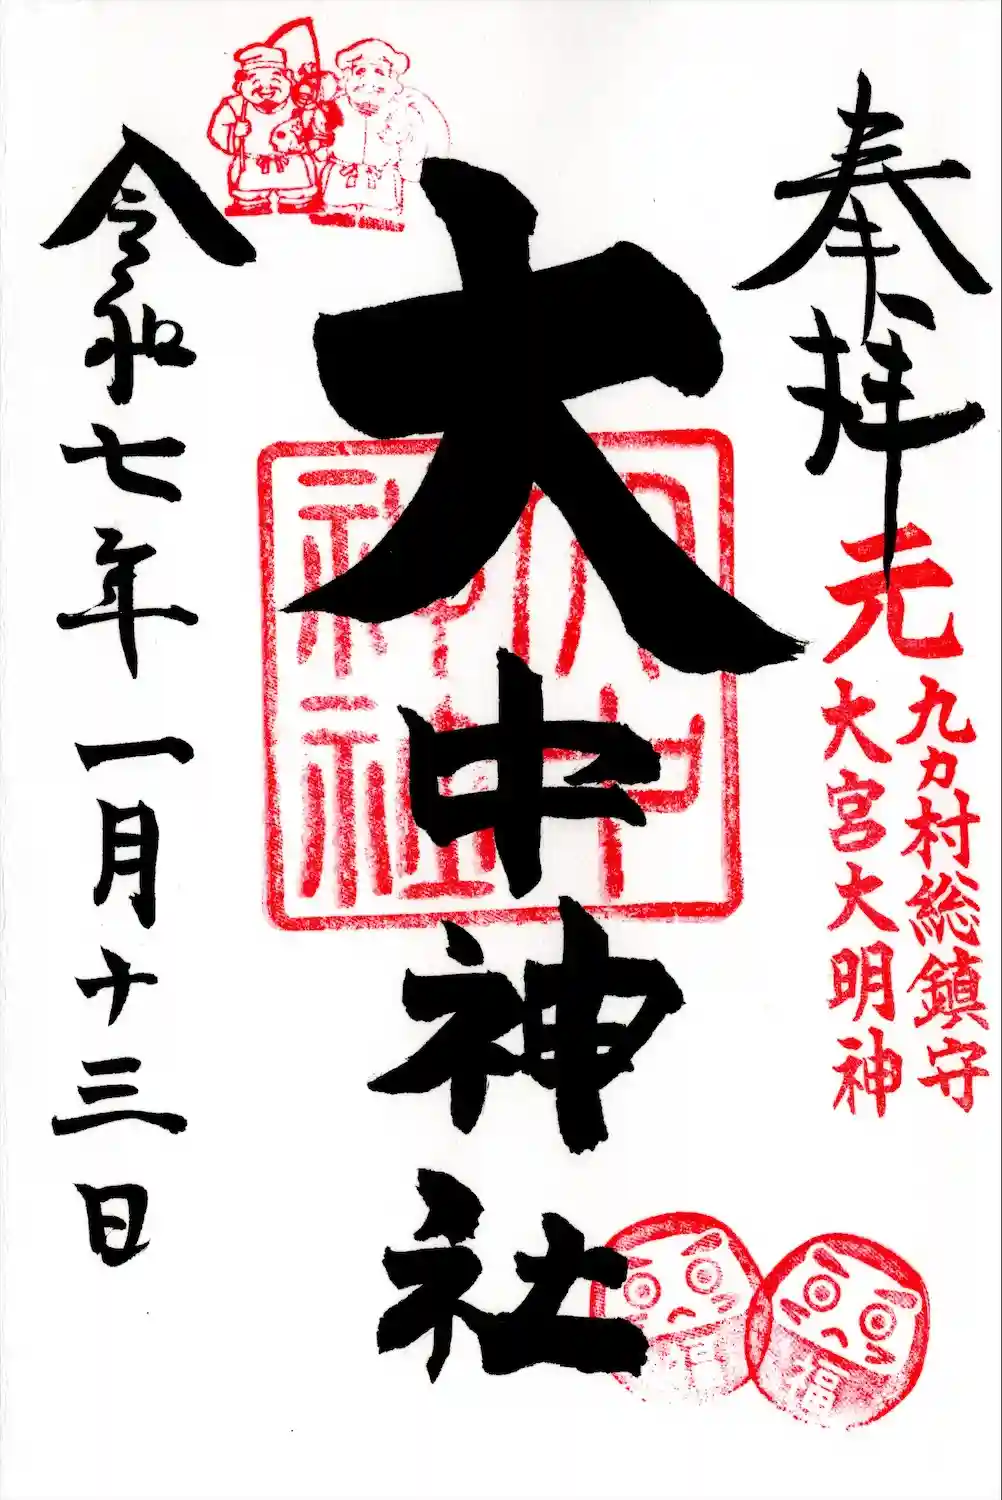 奉拝
元
九カ村総鎮守
大宮大明神
大中神社
大中
神社
福
福
令和七年一月十三日